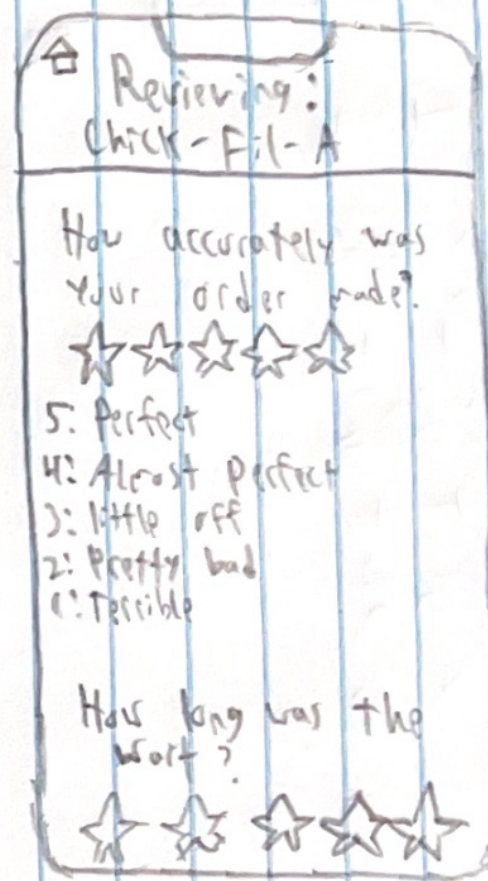 Reviewing:
Chick-Fil-A
How accurately was
your order made?
5: Perfect
4: Almost perfect
3: little off
2: Pretty bad
1: Terrible
How long was the
wait?